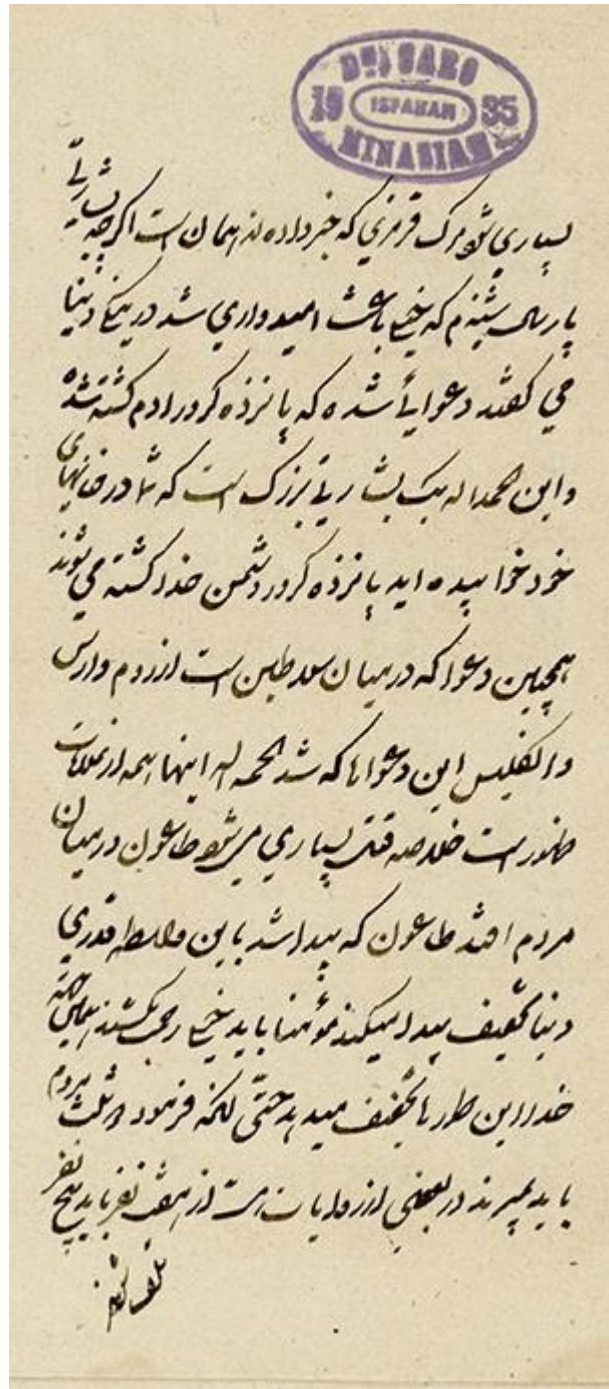 DR. CARO
19 ISFAHAN 35
MINASIAN
بسیاری شود مرگ قرمزی که خبر داده اند همان است اگر چه بشارتی
پارسال شنیدم که خیلی باعث امیدواری شد در ینگی دنیا
می گفتند دعوایی شده که پانزده کرور ادم کشته شده
و این الحمد اله یک بشارتی بزرگ است که شما در خانهای
خود خوابیده اید پانزده کرور دشمن خدا کشته می شوند
همچنین دعوا که در میان سلاطین است از روم وارس
و انگلیس این دعواها که شد الحمد اله اینها همه از علامات
ظهور است خلاصه قتل بسیاری می شود طاعون در میان
مردم افتد طاعون که پیدا شد باین واسطه قدری
دنیا تخفیف پیدا میکند مؤمنها باید خیلی
خدا این طورها تخفیف میدهد حتی انکه فرمود دو ثلث مردم
باید بمیرند در بعضی از روایات است از هفت نفر باید پنج نفر
تلف شوند